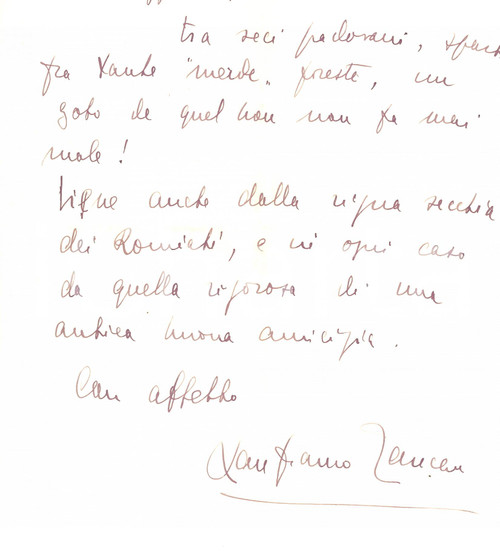 tra veci padovani,
fra tante "merde" foreste, un
goto de quel bon non fa mai
male!
Viene anche dalla vigna vecchia
dei Romiati, e in ogni caso
da quella vigorosa di una
antica buona amicizia.
Con affetto
Lanfranco Zancan